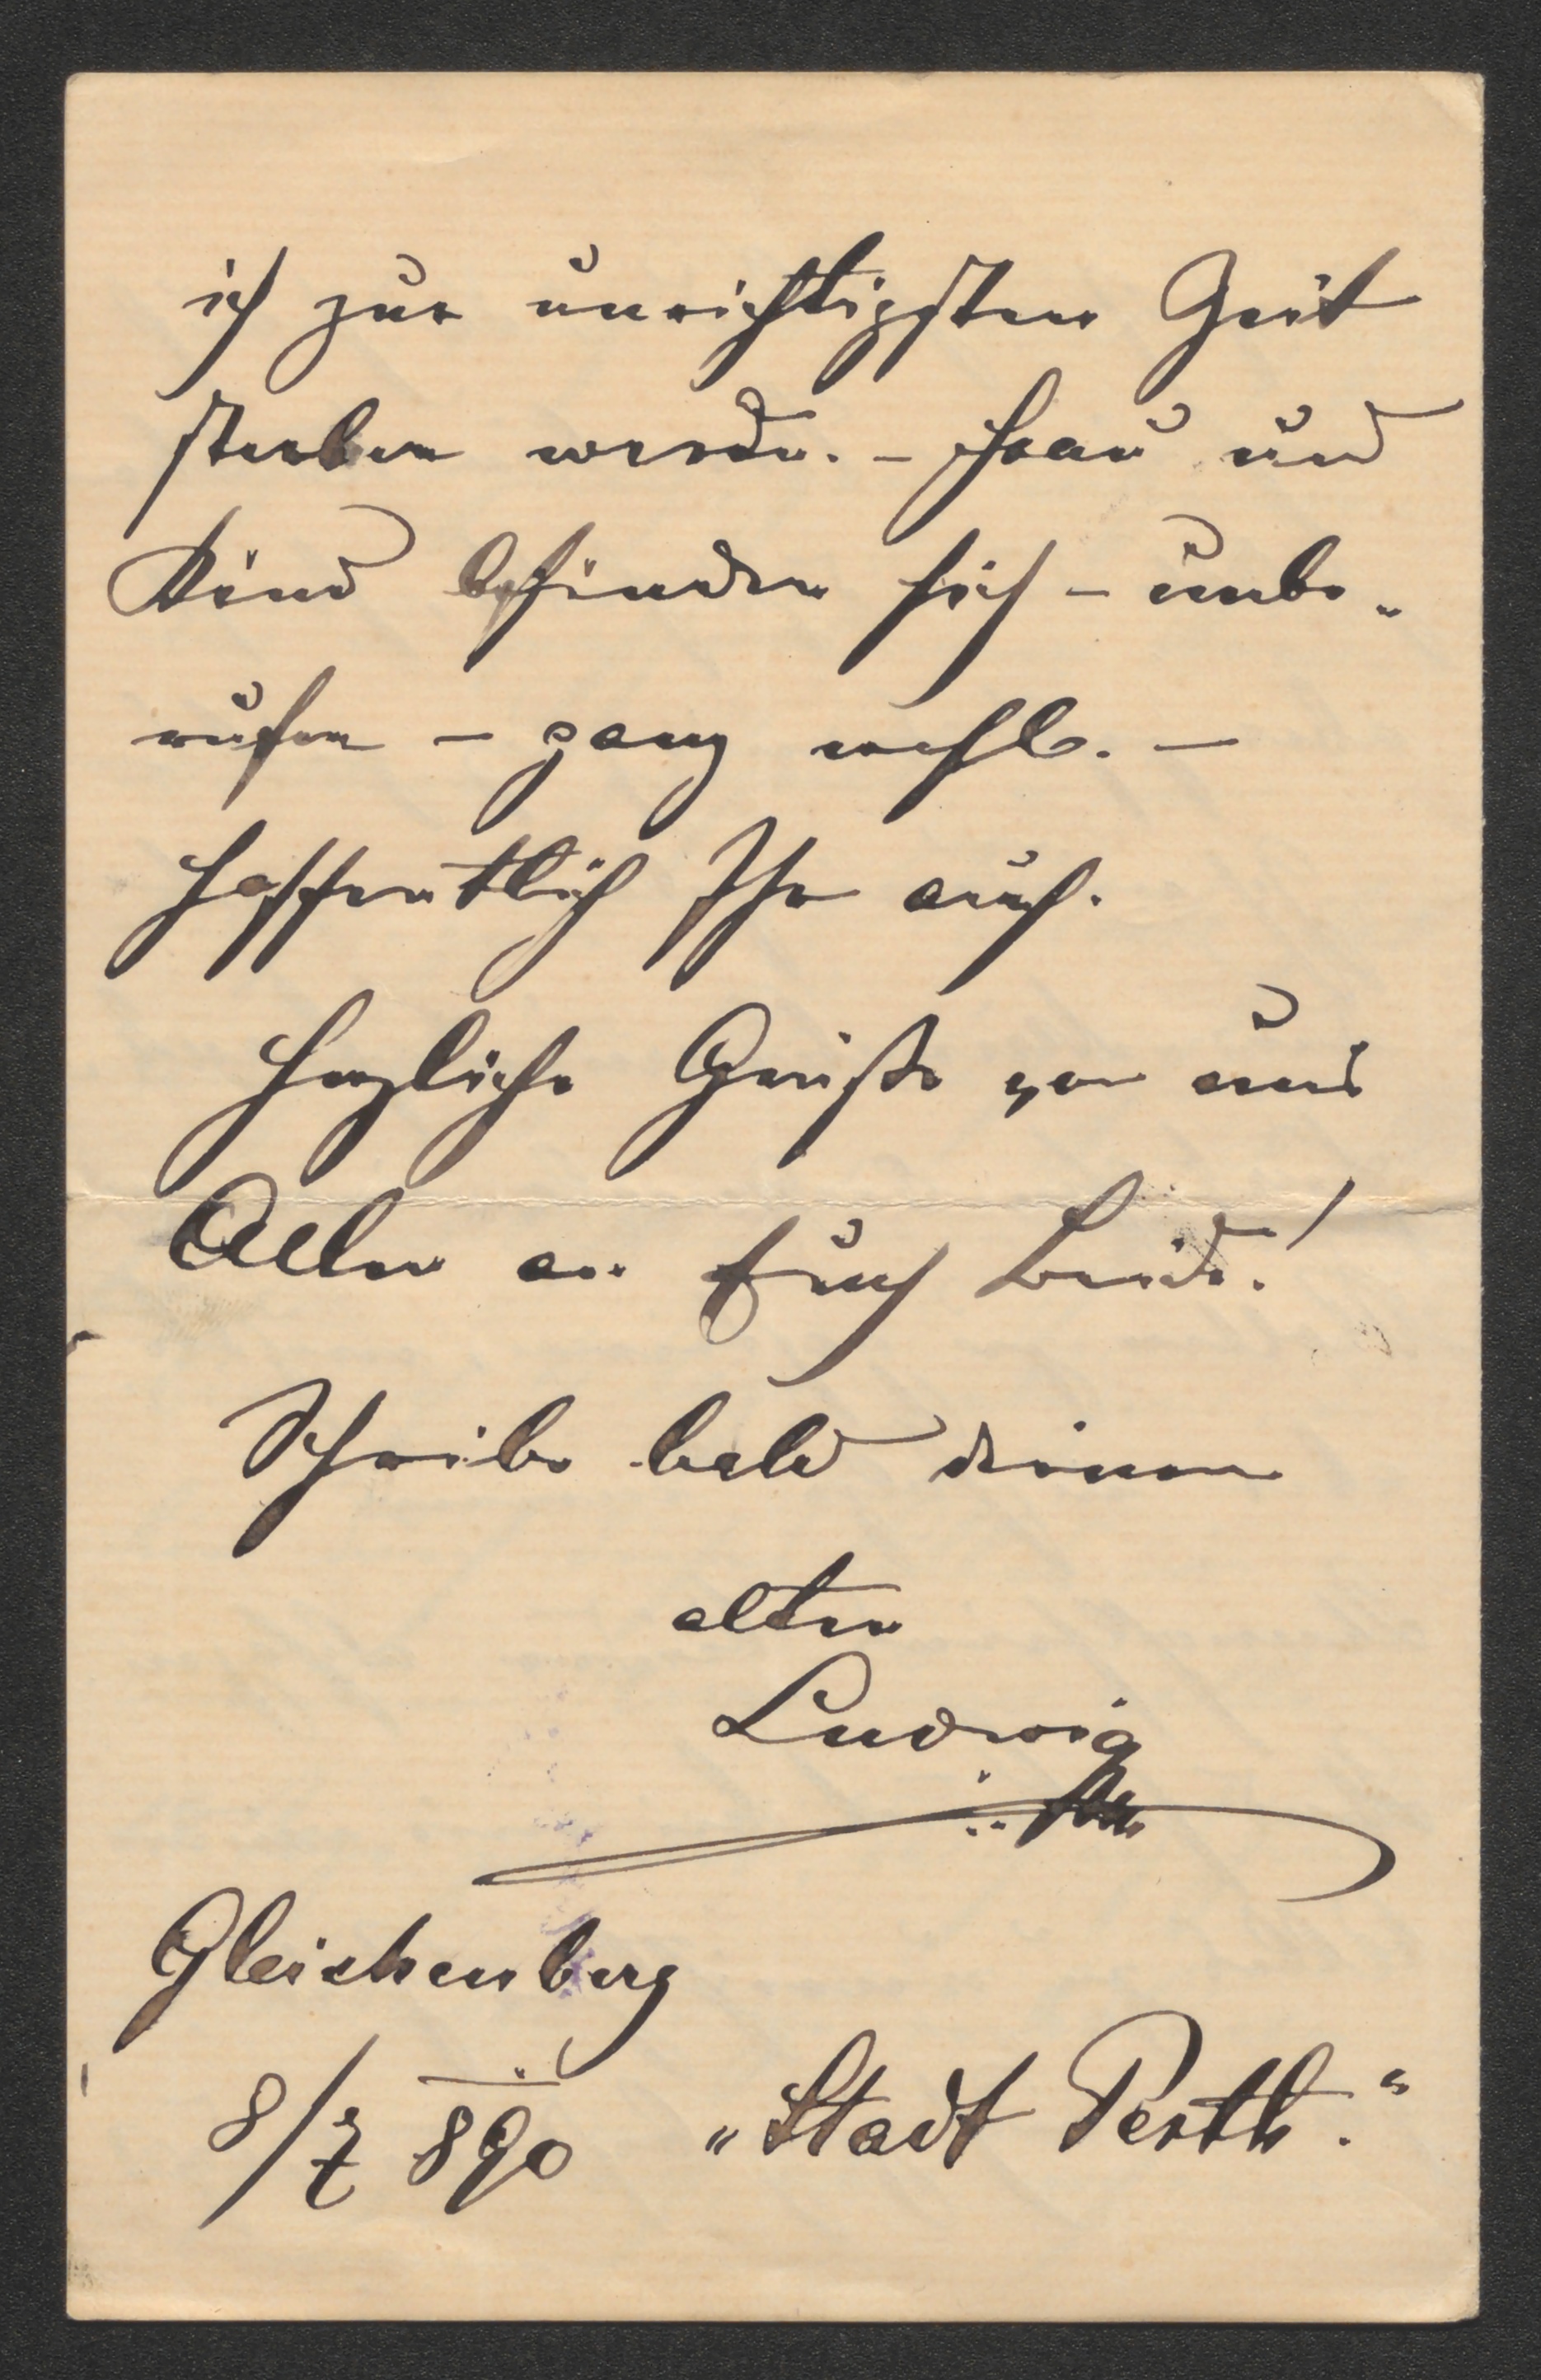 ich zur unrichtigsten Zeit
sterben werde. – Frau und
Kind befinden sich – unbe„
rufen – ganz wohl. –
Hoffentlich Ihr auch.
Herzliche Grüße von uns
Allen an Euch Beide!
Schreibe bald deinem
alten
Ludwig
Gleichenberg
8/7 890 „Stadt Pesth.“